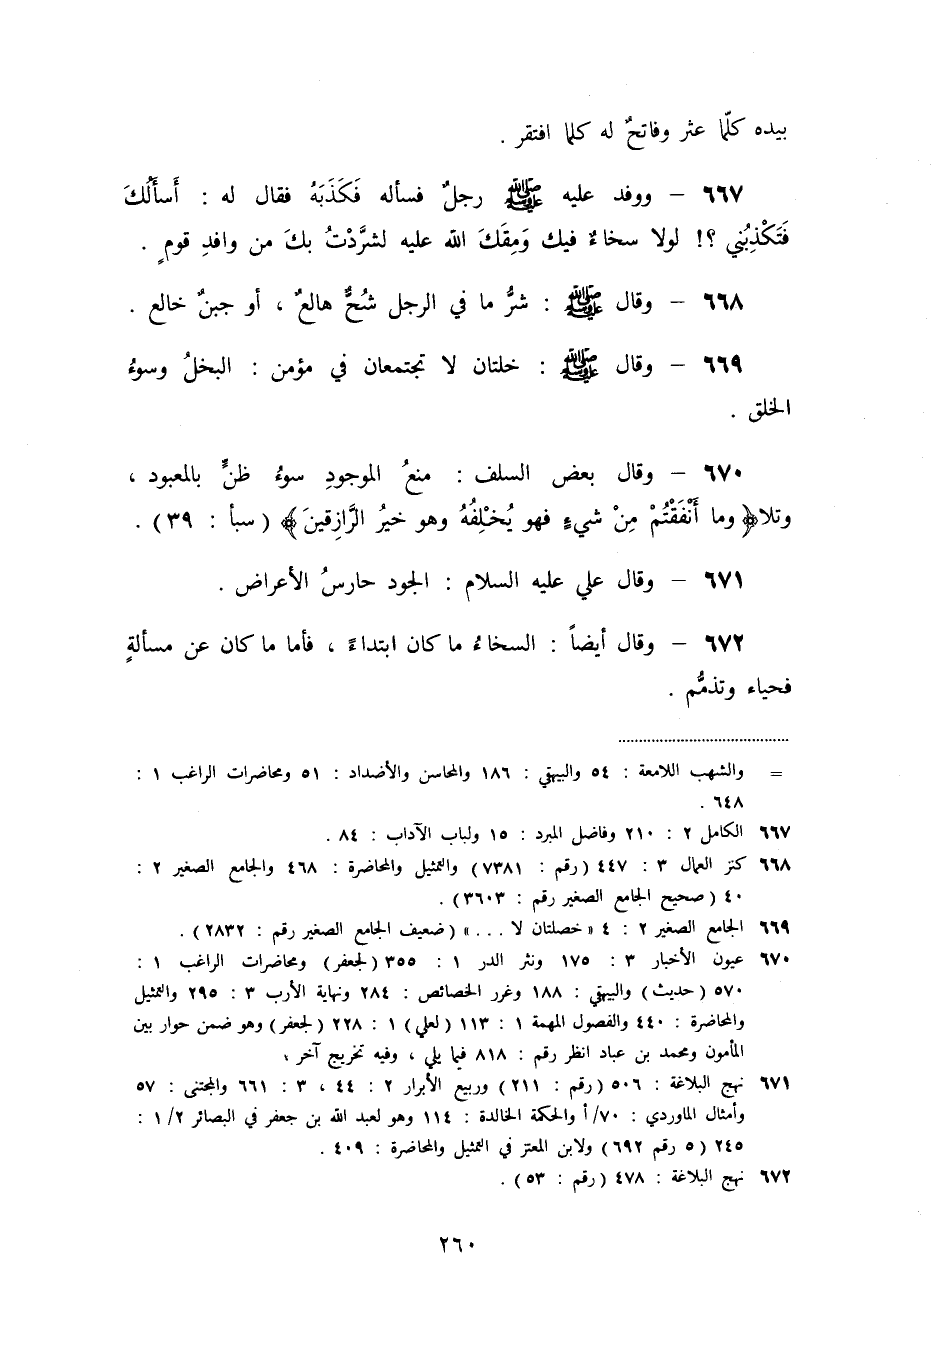 بيده كلّما عثر وفاتحٌ له كلما افتقر .
٦٦٧ – ووفد عليه ﷺ رجلٌ فسأله فَكَذَبَهُ فقال له : أَسأَلُكَ
فَتَكْذِبُني ؟! لولا سخاءٌ فيك وَمِقَكَ الله عليه لشرَّدْتُ بكَ من وافدِ قومٍ .
٦٦٨ – وقال ﷺ : شرُّ ما في الرجل شُحٌّ هالعٌ ، أو جبنٌ خالع .
٦٦٩ – وقال ﷺ : خلتان لا تجتمعان في مؤمن : البخلُ وسوءُ
الخلق .
٦٧٠ – وقال بعض السلف : منعُ الموجودِ سوءُ ظنٍّ بالمعبود ،
وتلا﴿وما أَنْفَقْتُمْ مِنْ شيءٍ فهو يُخْلِفُهُ وهو خيرُ الرَّازِقينَ﴾ (سبأ : ٣٩) .
٦٧١ – وقال علي عليه السلام : الجود حارسُ الأعراض .
٦٧٢ – وقال أيضاً : السخاءُ ما كان ابتداءً ، فأما ما كان عن مسألةٍ
فحياء وتذمُّم .
= والشهب اللامعة : ٥٤ والبيهقي : ١٨٦ والمحاسن والأضداد : ٥١ ومحاضرات الراغب ١ :
٦٤٨ .
٦٦٧ الكامل ٢ : ٢١٠ وفاضل المبرد : ١٥ ولباب الآداب : ٨٤ .
٦٦٨ كنز العمال ٣ : ٤٤٧ (رقم : ٧٣٨١) والتمثيل والمحاضرة : ٤٦٨ والجامع الصغير ٢ :
٤٠ (صحيح الجامع الصغير رقم : ٣٦٠٣) .
٦٦٩ الجامع الصغير ٢ : ٤ «خصلتان لا . . .» (ضعيف الجامع الصغير رقم : ٢٨٣٢) .
٦٧٠ عيون الأخبار ٣ : ١٧٥ ونثر الدر ١ : ٣٥٥ (لجعفر) ومحاضرات الراغب ١ :
٥٧٠ (حديث) والبيهقي : ١٨٨ وغرر الخصائص : ٢٨٤ ونهاية الأرب ٣ : ٢٩٥ والتمثيل
والمحاضرة : ٤٤٠ والفصول المهمة ١ : ١١٣ (لعلي) ١ : ٢٢٨ (لجعفر) وهو ضمن حوار بين
المأمون ومحمد بن عباد انظر رقم : ٨١٨ فيما يلي ، وفيه تخريج آخر ،
٦٧١ نهج البلاغة : ٥٠٦ (رقم : ٢١١) وربيع الأبرار ٢ : ٤٤ ، ٣ : ٦٦١ والمجتنى : ٥٧
وأمثال الماوردي : ٧٠/أ والحكمة الخالدة : ١١٤ وهو لعبد الله بن جعفر في البصائر ١/٢ :
٢٤٥ (٥ رقم ٦٩٢) ولابن المعتز في التمثيل والمحاضرة : ٤٠٩ .
٦٧٢ نهج البلاغة : ٤٧٨ (رقم : ٥٣) .
٢٦٠